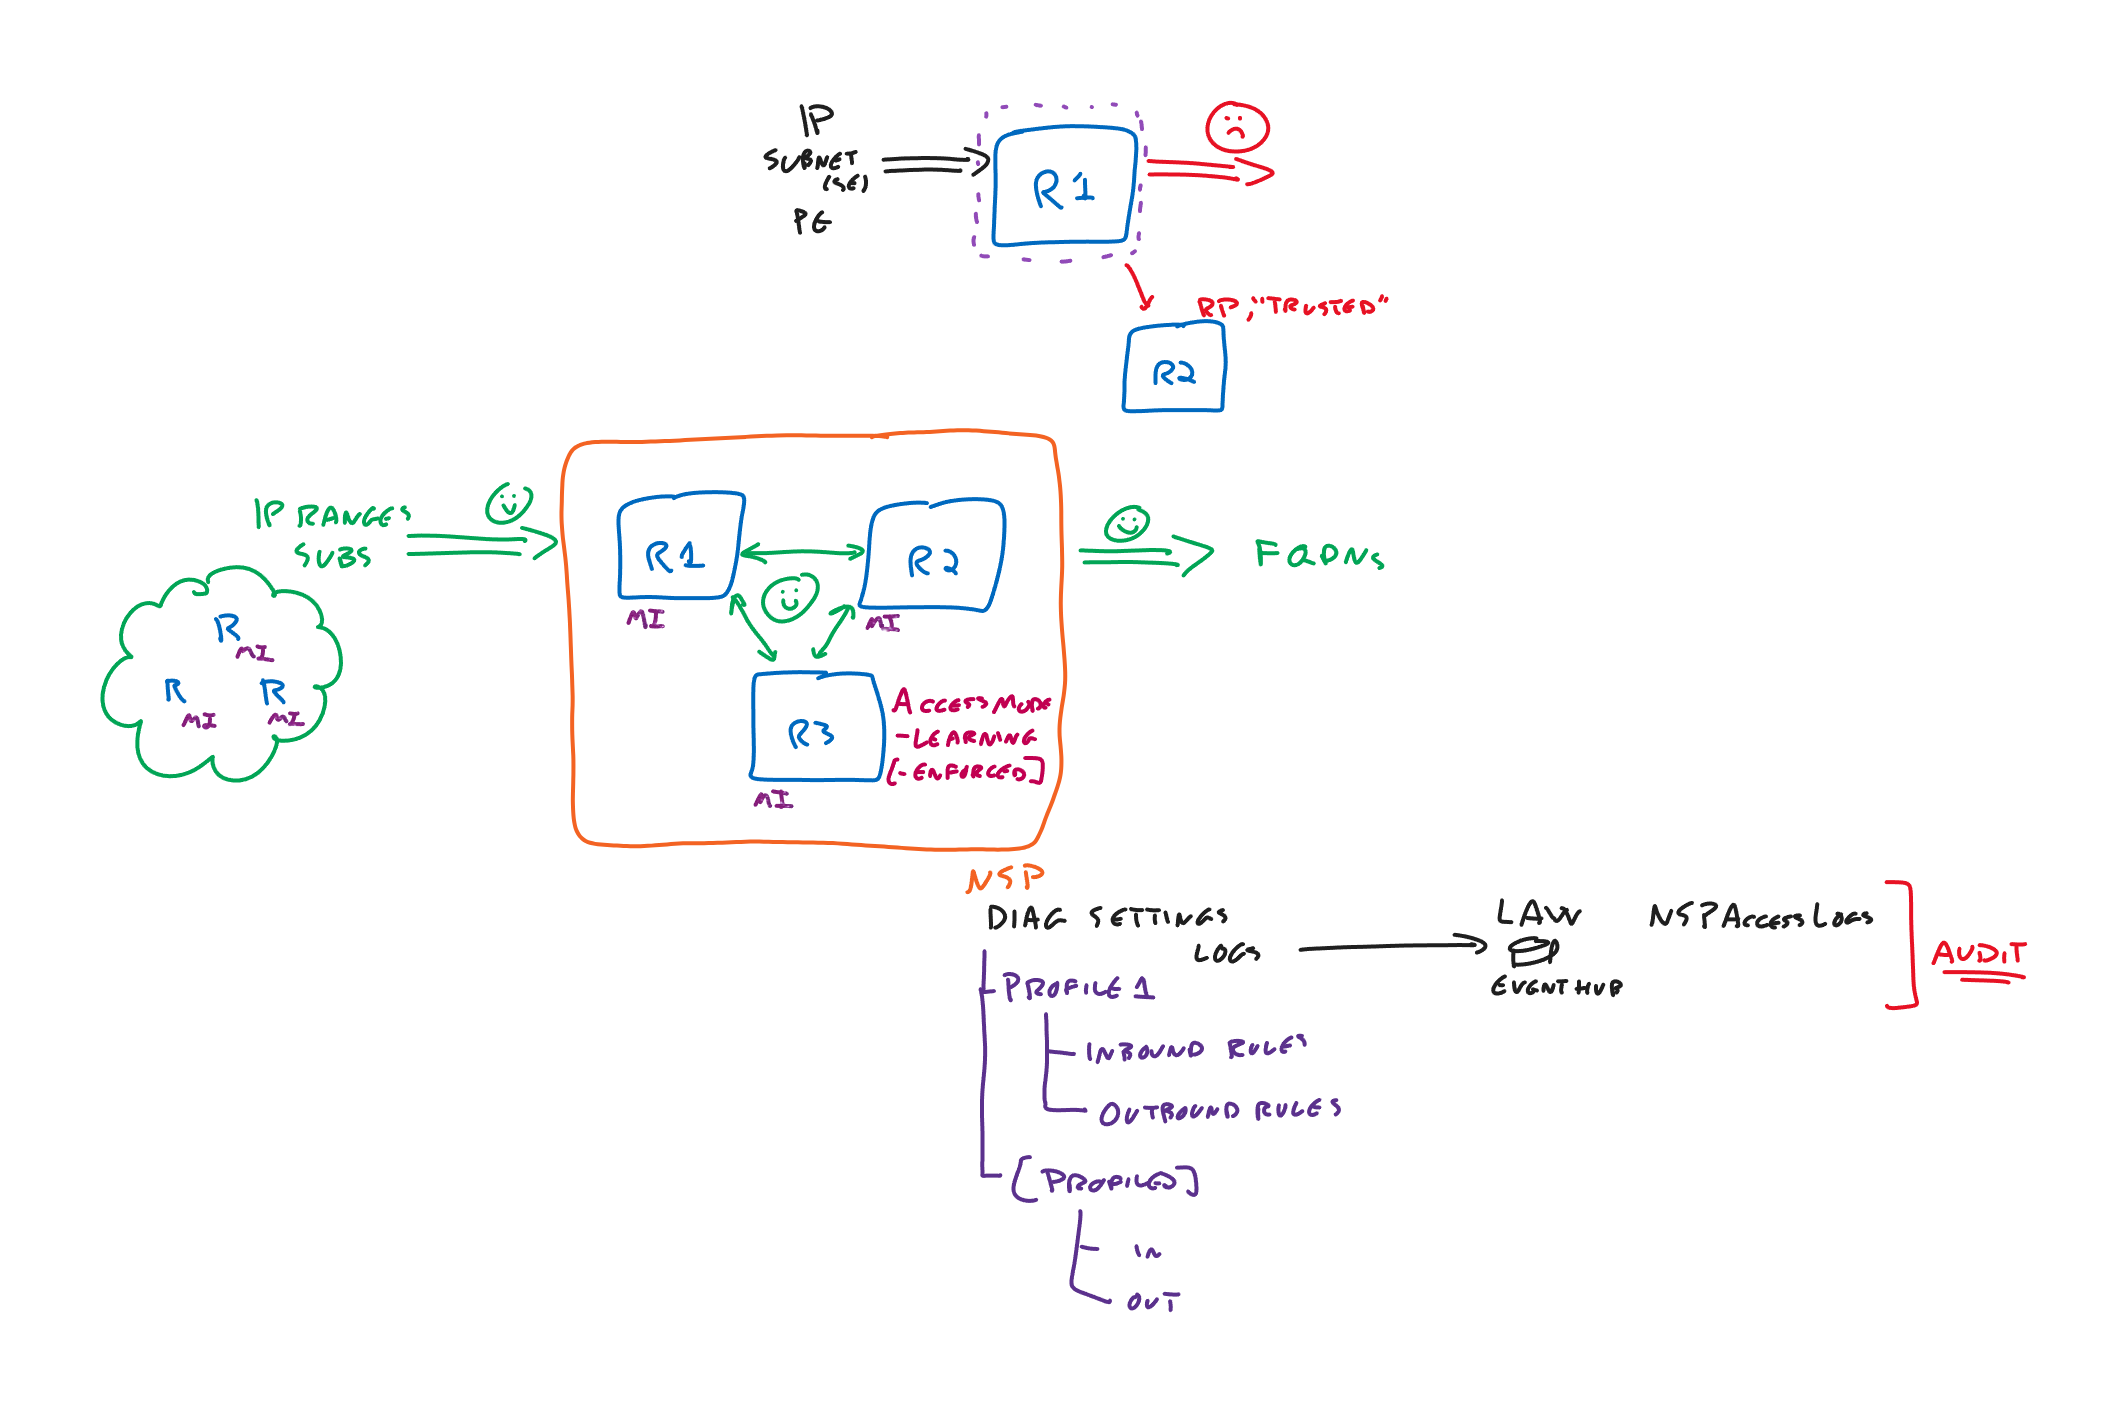 IP
SUBNET
(SE)
PE
R1
RP, "TRUSTED"
R2
IP RANGES
SUBS
R
MI
R
MI
R
MI
R1
MI
R2
MI
R3
MI
ACCESSMODE
-LEARNING
[-ENFORCED]
FQDNS
NSP
DIAG SETTINGS
LOGS
LAW
EVENT HUB
NSPACCESSLOGS
AUDIT
PROFILE 1
INBOUND RULES
OUTBOUND RULES
[PROFILES]
IN
OUT